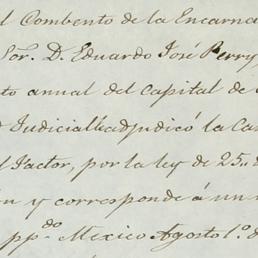 l Combento de la Encarna
Sor. D. Eduardo José Perry,
to annual del Capital de
Judicial le adjudicó la Ca
l Factor, por la ley de 25.. d
n y corresponde á un
pp.do Mexico Agosto 1.o d